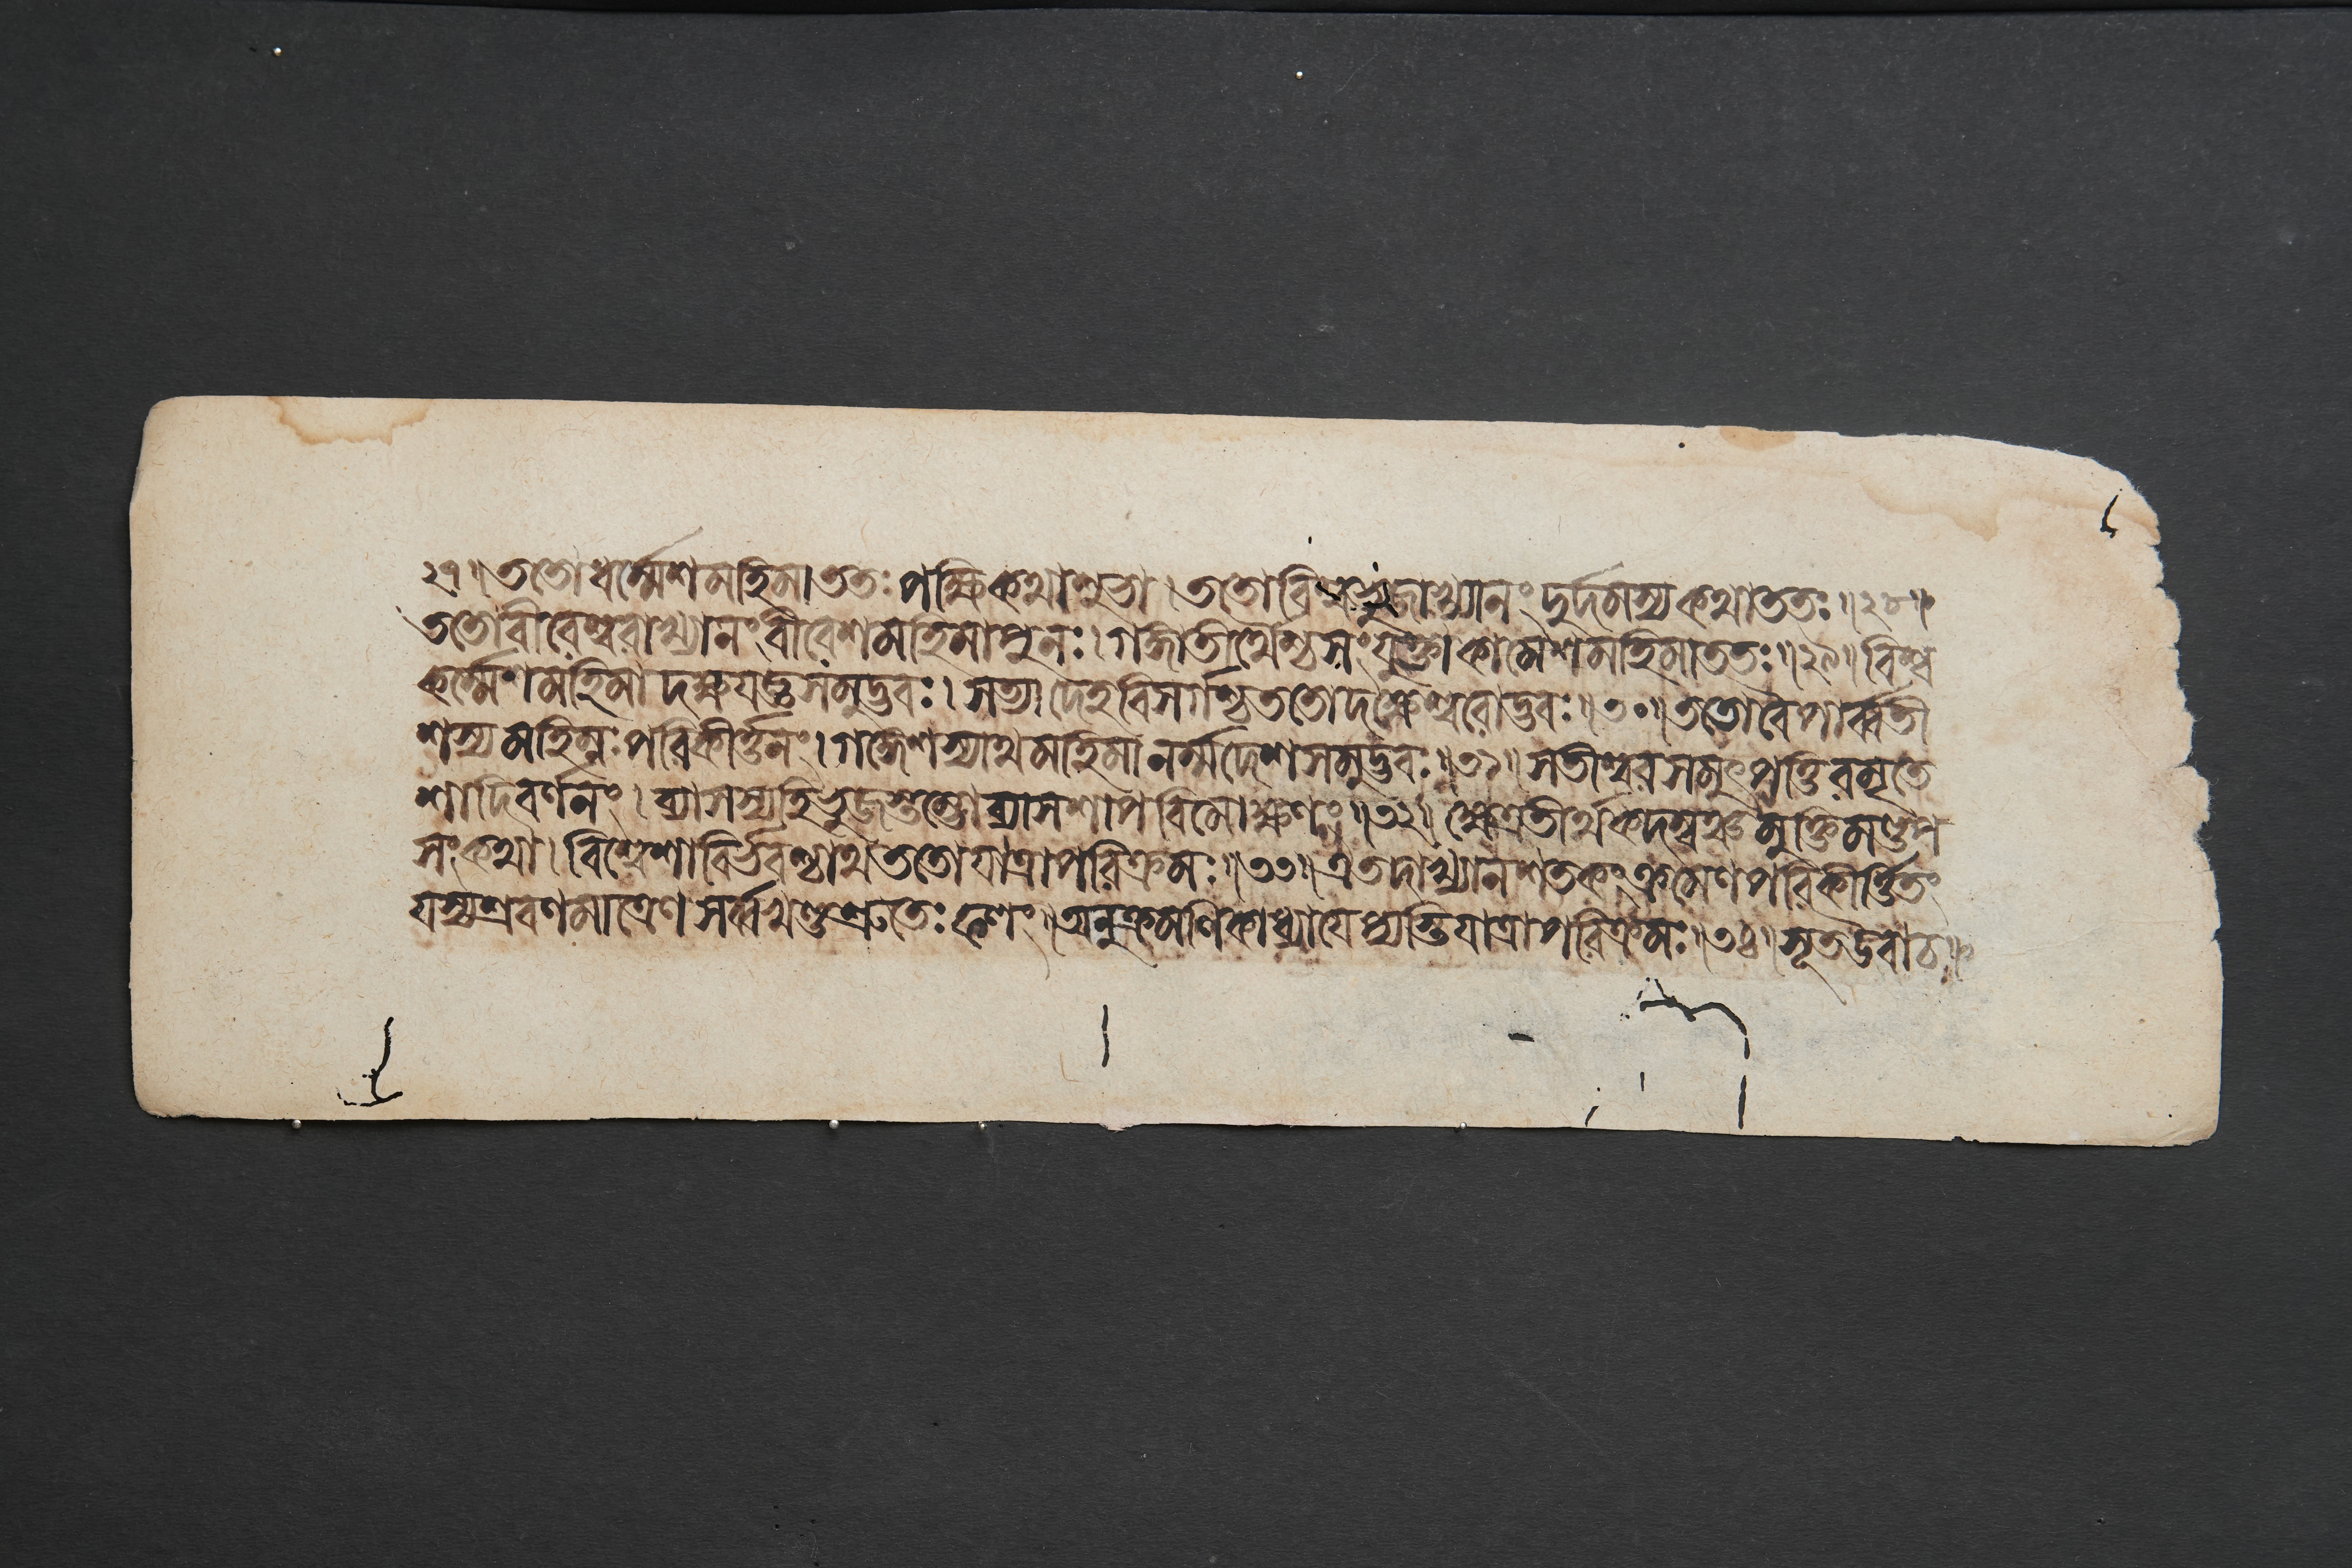 ২৭॥ততোধর্ম্মেশমহিমাততঃপক্ষিকথাশুভা।ততোবিশ্বভুজাখ্যানংদুর্দমস্যকথাততঃ॥২৮॥
ততোবীরেশ্বরাখ্যানংবীরেশমহিমাপুনঃ।গঙ্গাতীর্থৈশ্চসংযুক্তাকামেশমহিমাততঃ॥২৯॥বিশ্ব
কর্ম্মেশমহিমাদক্ষযজ্ঞসমুদ্ভবঃ।সত্যাদেহবিসর্গশ্চততোদক্ষেশ্বরোদ্ভবঃ॥৩০॥ততোবৈপার্ব্বতী
শস্যমহিম্নঃপরিকীর্ত্তনং।গঙ্গেশস্যাথমহিমানর্ম্মদেশসমুদ্ভবঃ॥৩১॥সতীশ্বরসমুৎপত্তিরমৃতে
শাদিবর্ণনং।ব্যাসস্যহিভুজস্তম্ভোব্যাসশাপবিমোক্ষণং॥৩২॥ক্ষেত্রতীর্থকদম্বঞ্চমুক্তিমণ্ডপ
সংকথা।বিশ্বেশাবির্ভবশ্চাথততোযাত্রাপরিক্রমঃ॥৩৩॥এতদাখ্যানশতকংক্রমেণপরিকীর্ত্তিতং
যস্যশ্রবণমাত্রেণসর্ব্বখণ্ডশ্রুতেঃফলং॥অনুক্রমণিকাধ্যায়েপ্যস্তিযাত্রাপরিক্রমঃ॥৩৪॥সূতউবাচ॥